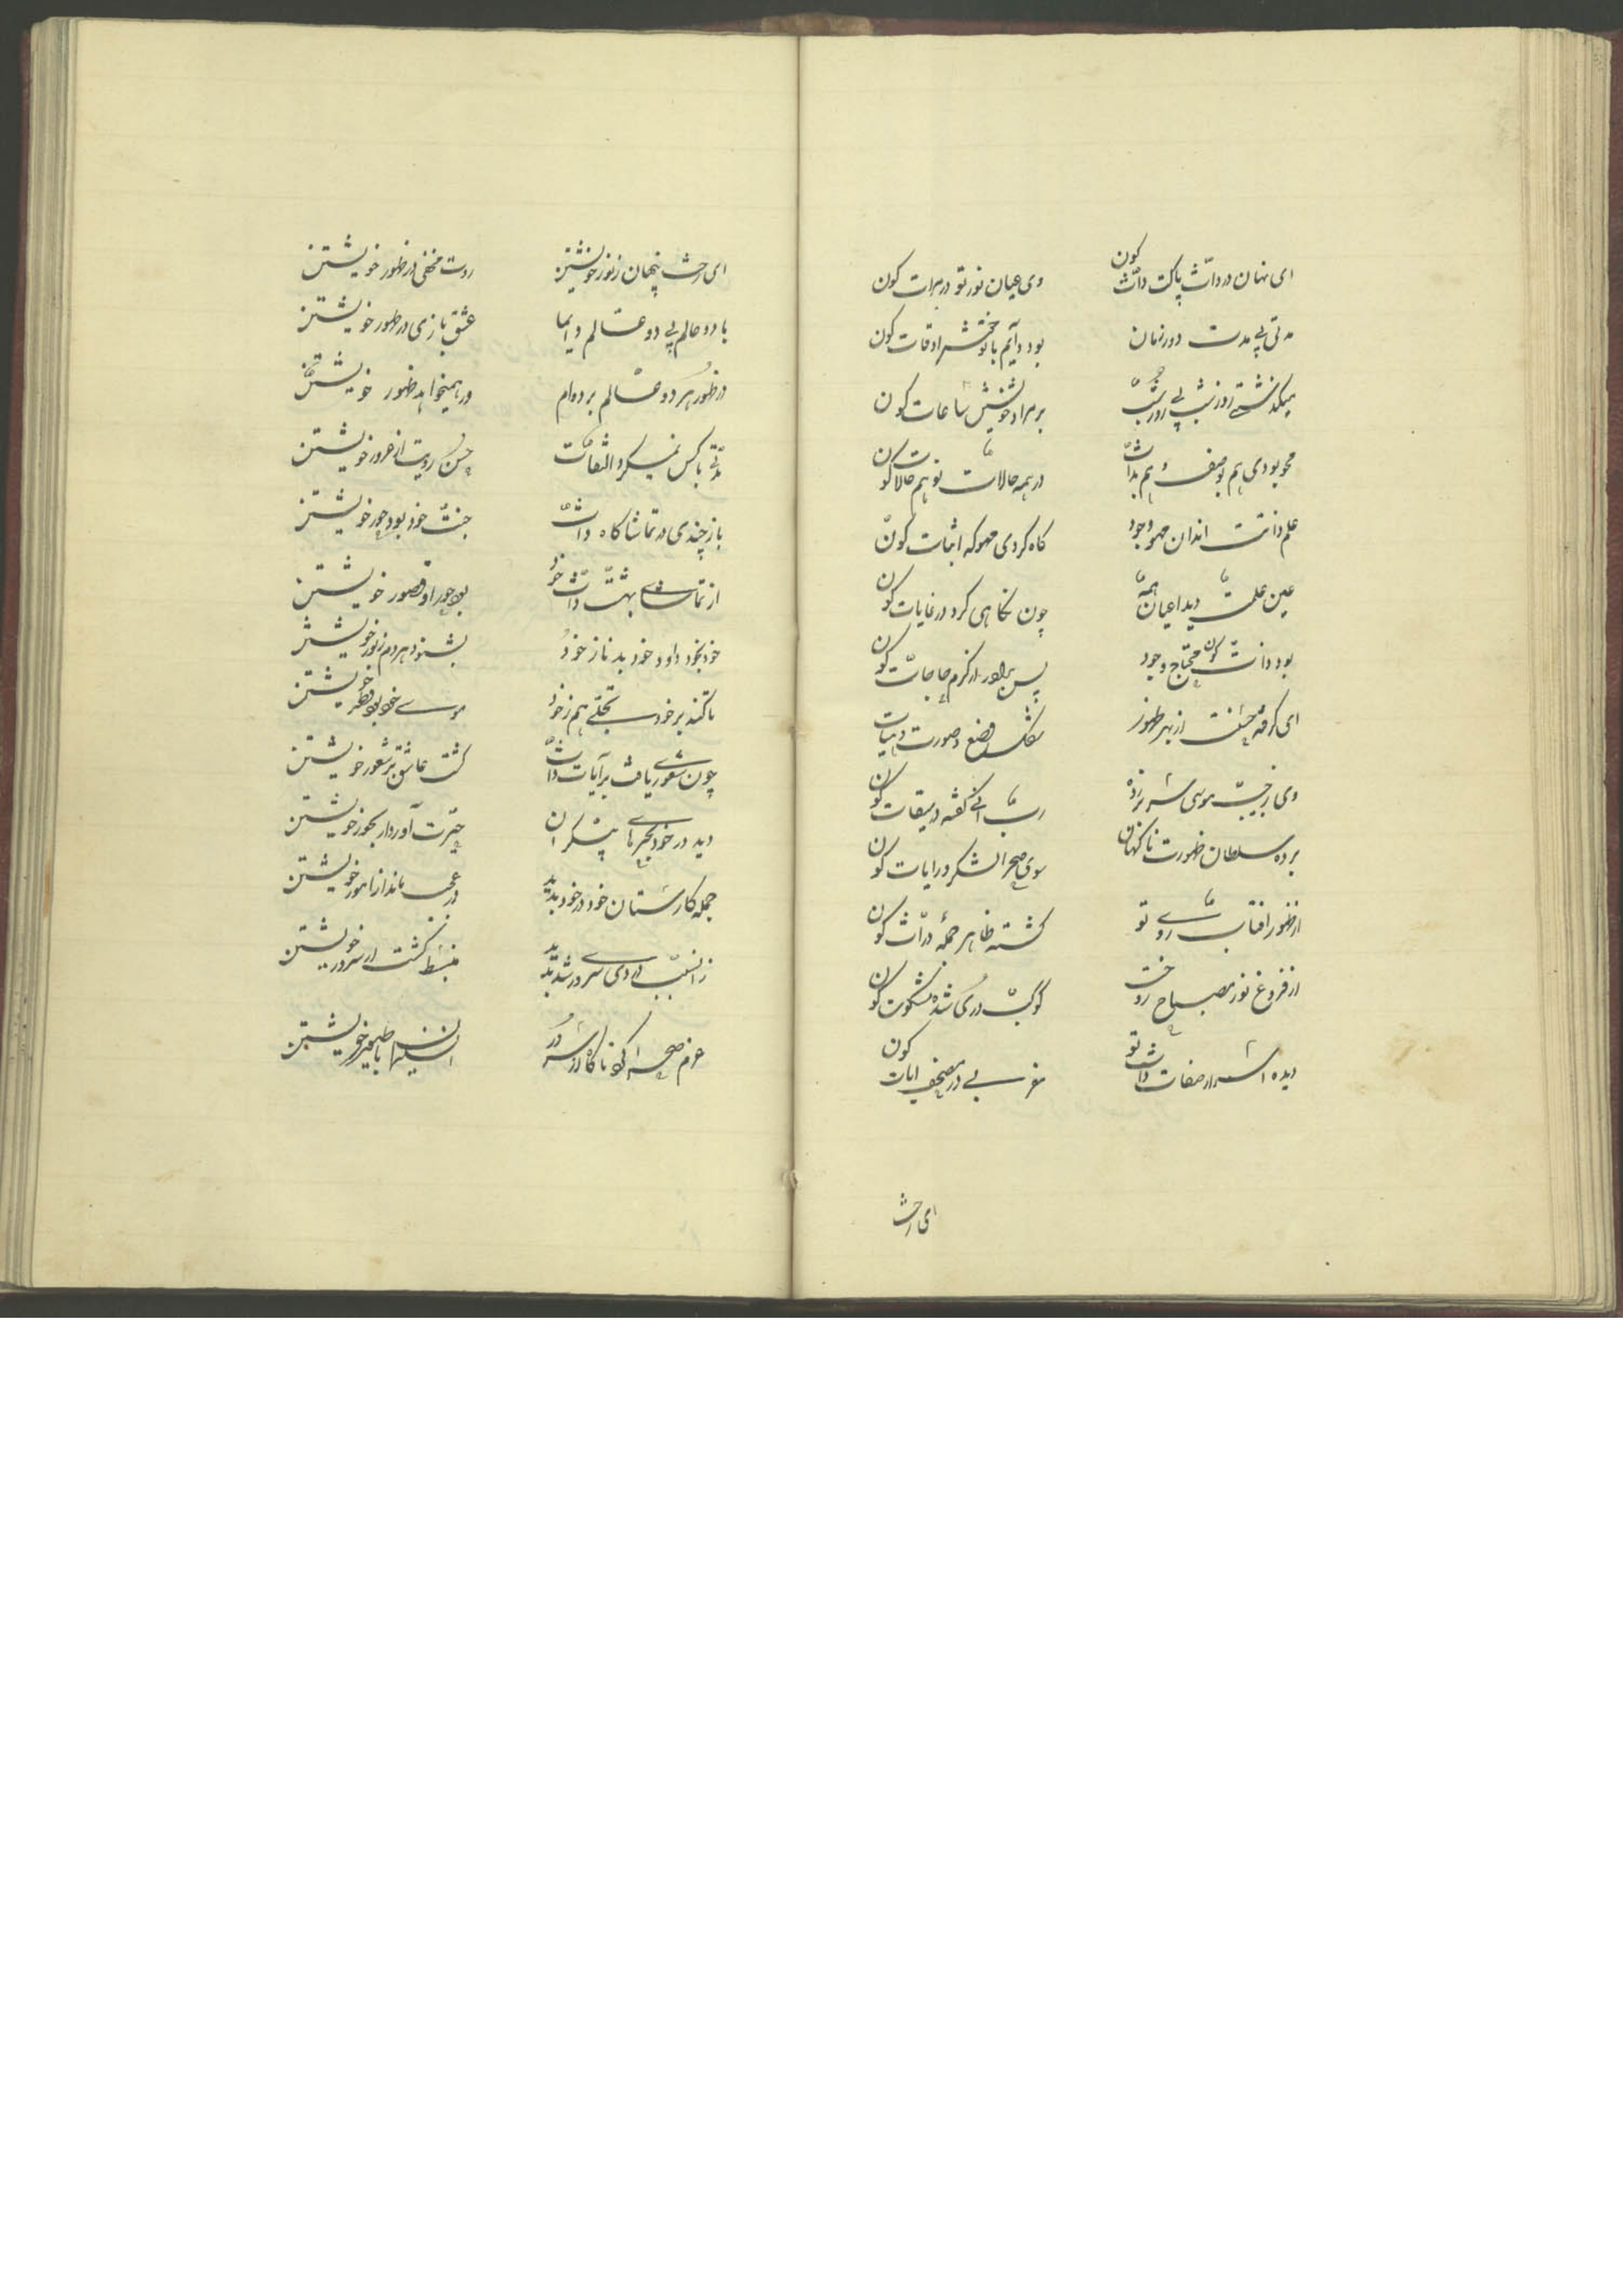 ای نهان در ذات پاکت ذات کون
وی عیان نور تو در مرات کون
مدتی بی مدت دور زمان
بود دایم با تو خوش اوقات کون
میگذشتی روز و شب بی روز و شب
بر مراد خویش ساعات کون
محو بودی هم بوصف و هم بذات
در همه حالات تو هم حالات کون
علم ذاتت اندران محو وجود
گاه کردی محو گه اثبات کون
عین علمت دید اعیان همه
چون نگاهی کرد در غایات کون
بود ذات کون محتاج وجود
پس براور از کرم حاجات کون
ای گرفته حسنت از بهر ظهور
شکل و وضع و صورت و هیات
وی ز جیب موسی سر بر زده
رب ارنی گفته در میقات کون
برده سلطان ظهورت ناگهان
سوی صحرا لشکر و رایات کون
از ظهور افتاب روی تو
گشته ظاهر جمله ذرات کون
از فروغ نور مصباح رخت
کوکب دری شده مشکوت کون
دیده اسرار صفات ذات تو
مغربی در مصحف ایات کون
ای رخت
ای رخت پنهان ز نور خویشتن
روت مخفی در ظهور خویشتن
با دو عالم بی دو عالم دایما
عشق بازی در طور خویشتن
در ظهور هر دو عالم بر دوام
در همیخواهد ظهور خویشتن
مدتی با کس نمیکرد التفات
حسن رویت از غرور خویشتن
باز چندی در تماشاگاه ذات
جنت خود بود و حور خویشتن
از تماشای بهشت ذات خود
بود حور او قصور خویشتن
خود بخود داود خود بد ناز خود
بشنود هر دم زبور خویشتن
تا کند بر خود تجلی هم ز خود
موسی خود بود و طور خویشتن
چون شعوری یافت بر آیات ذات
گشت عاشق بر شعور خویشتن
دید در خود بحرهای بیکران
حیرت آورد از بحور خویشتن
جمله کارستان خود در خود بدید
در عجب ماند از امور خویشتن
منبسط گشت از سرور خویشتن
عزم صحرا کرد ناگاه از سرور